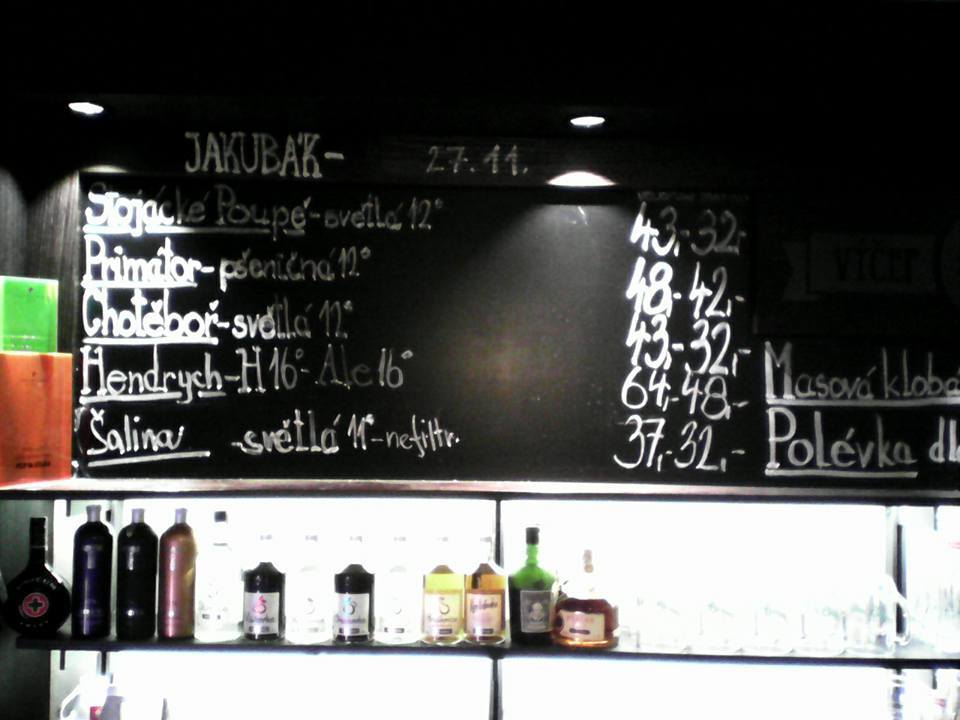 JAKUBÁK- 27.11.
Stojácké Poupě-světlá 12° 43,-32,-
Primátor-pšeničná 12° 48,-42,-
Chotěboř-světlá 12° 43,-32,-
Hendrych-H16°-Ale 16° 64,-48,-
Šalina -světlá 11°-nefiltr. 37,-32,-
VÍČEP
Masová klobá
Polévka dle